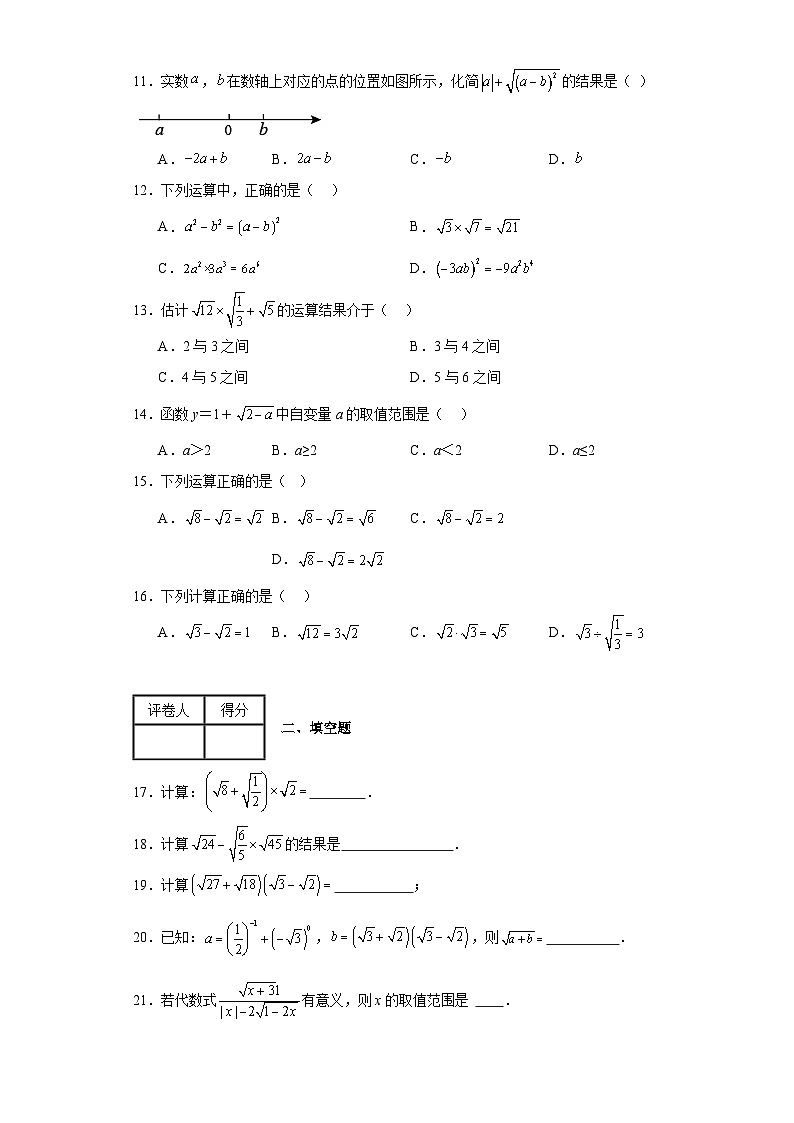 11．实数a，b在数轴上对应的点的位置如图所示，化简|a|+√((a−b)²)的结果是（ ）
a 0 b
A．−2a+b B．2a−b C．−b D．b
12．下列运算中，正确的是（ ）
A．a²−b²=(a−b)² B．√3×√7=√21
C．2a²×3a³=6a⁶ D．(−3ab)²=−9a²b⁴
13．估计√12×√(1/3)+√5的运算结果介于（ ）
A．2与3之间 B．3与4之间
C．4与5之间 D．5与6之间
14．函数y＝1+√(2−a)中自变量a的取值范围是（ ）
A．a＞2 B．a≥2 C．a＜2 D．a≤2
15．下列运算正确的是（ ）
A．√8−√2=√2 B．√8−√2=√6 C．√8−√2=2
D．√8−√2=2√2
16．下列计算正确的是（ ）
A．√3−√2=1 B．√12=3√2 C．√2·√3=√5 D．√3÷√(1/3)=3
评卷人 得分
二、填空题
17．计算：(√8+√(1/2))×√2=________．
18．计算√24−√(6/5)×√45的结果是________________．
19．计算(√27+√18)(√3−√2)=___________;
20．已知：a=(1/2)⁻¹+(−√3)⁰，b=(√3+√2)(√3−√2)，则√(a+b)=__________．
21．若代数式 √(x+3)1/(|x|−2√(1−2x)) 有意义，则x的取值范围是 ____．